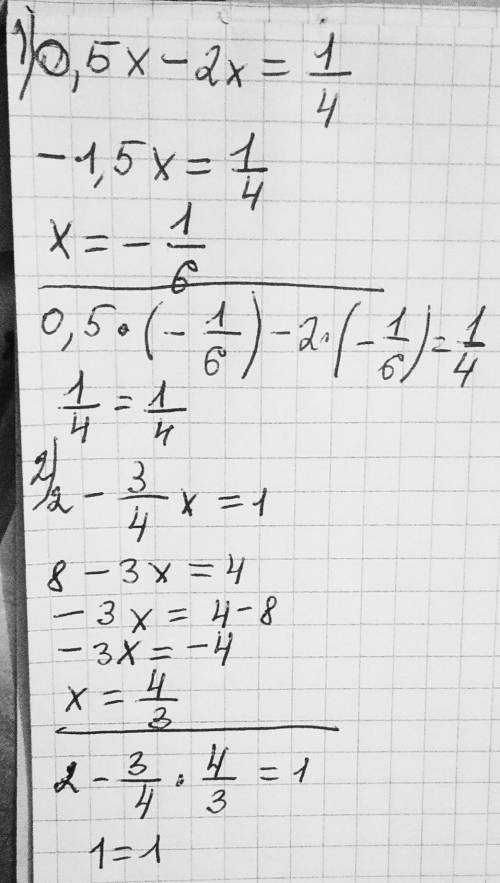 1) 0,5x - 2x = 1/4
-1,5x = 1/4
x = - 1/6
0,5 · (- 1/6) - 2 · (- 1/6) = 1/4
1/4 = 1/4
2) 2 - 3/4 x = 1
8 - 3x = 4
-3x = 4-8
-3x = -4
x = 4/3
2 - 3/4 · 4/3 = 1
1 = 1